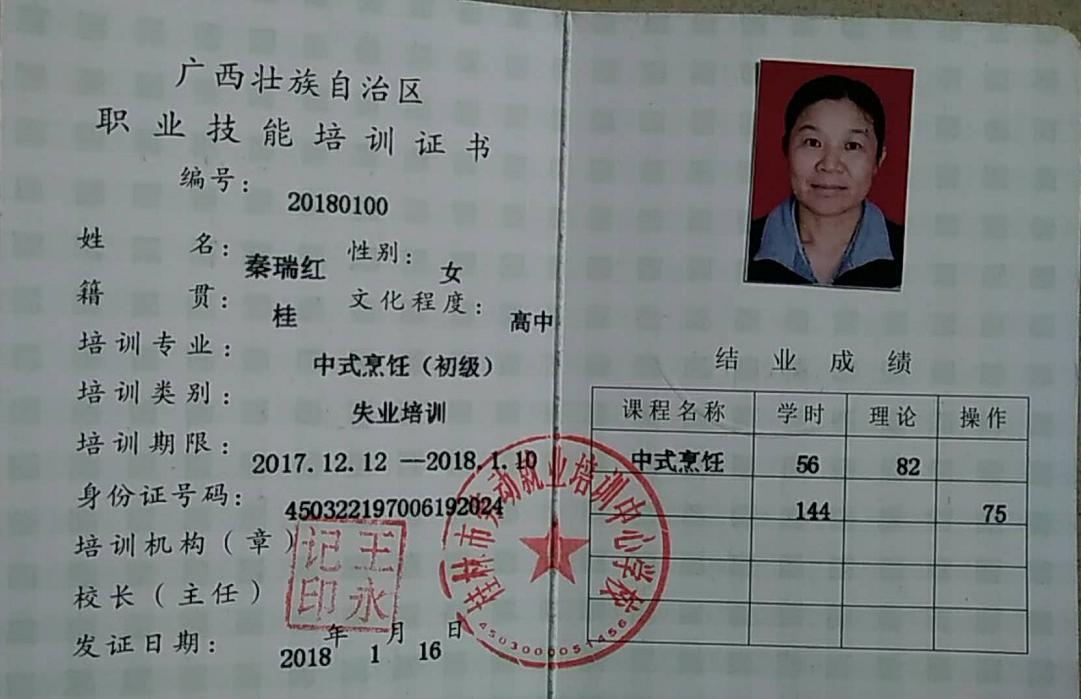 广西壮族自治区
职业技能培训证书
编号：20180100
姓名：秦瑞红 性别：女
籍贯：桂 文化程度：高中
培训专业：中式烹饪（初级）
培训类别：失业培训
培训期限：2017.12.12—2018.1.10
身份证号码：450322197006192024
培训机构（章）
校长（主任）
王永记印
发证日期：2018年1月16日
桂林市劳动就业培训中心学校
结业成绩
课程名称 学时 理论 操作
中式烹饪 56 82
144 75